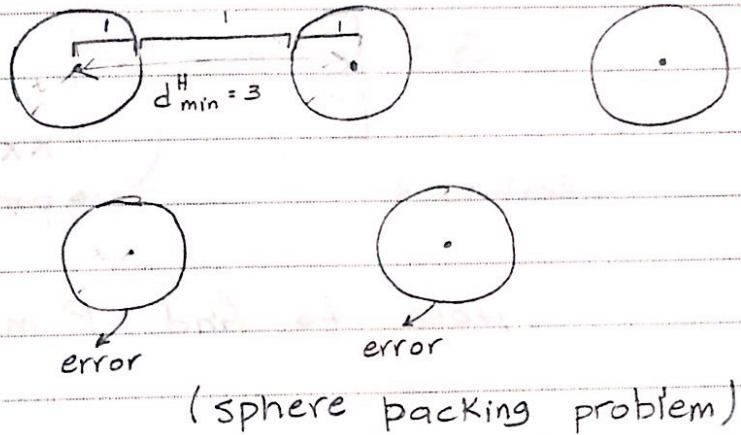 1 1 1
d^H_min = 3
error error
(sphere packing problem)